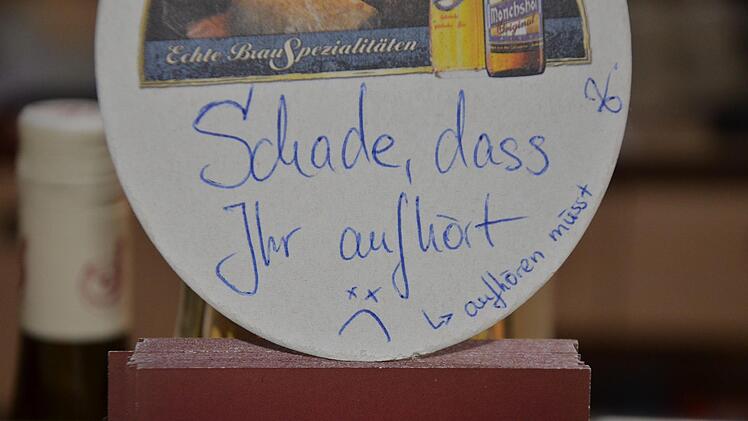 Echte BrauSpezialitäten
Mönchshof
Original
Schade, dass
Ihr aufhört
↳ aufhören müsst